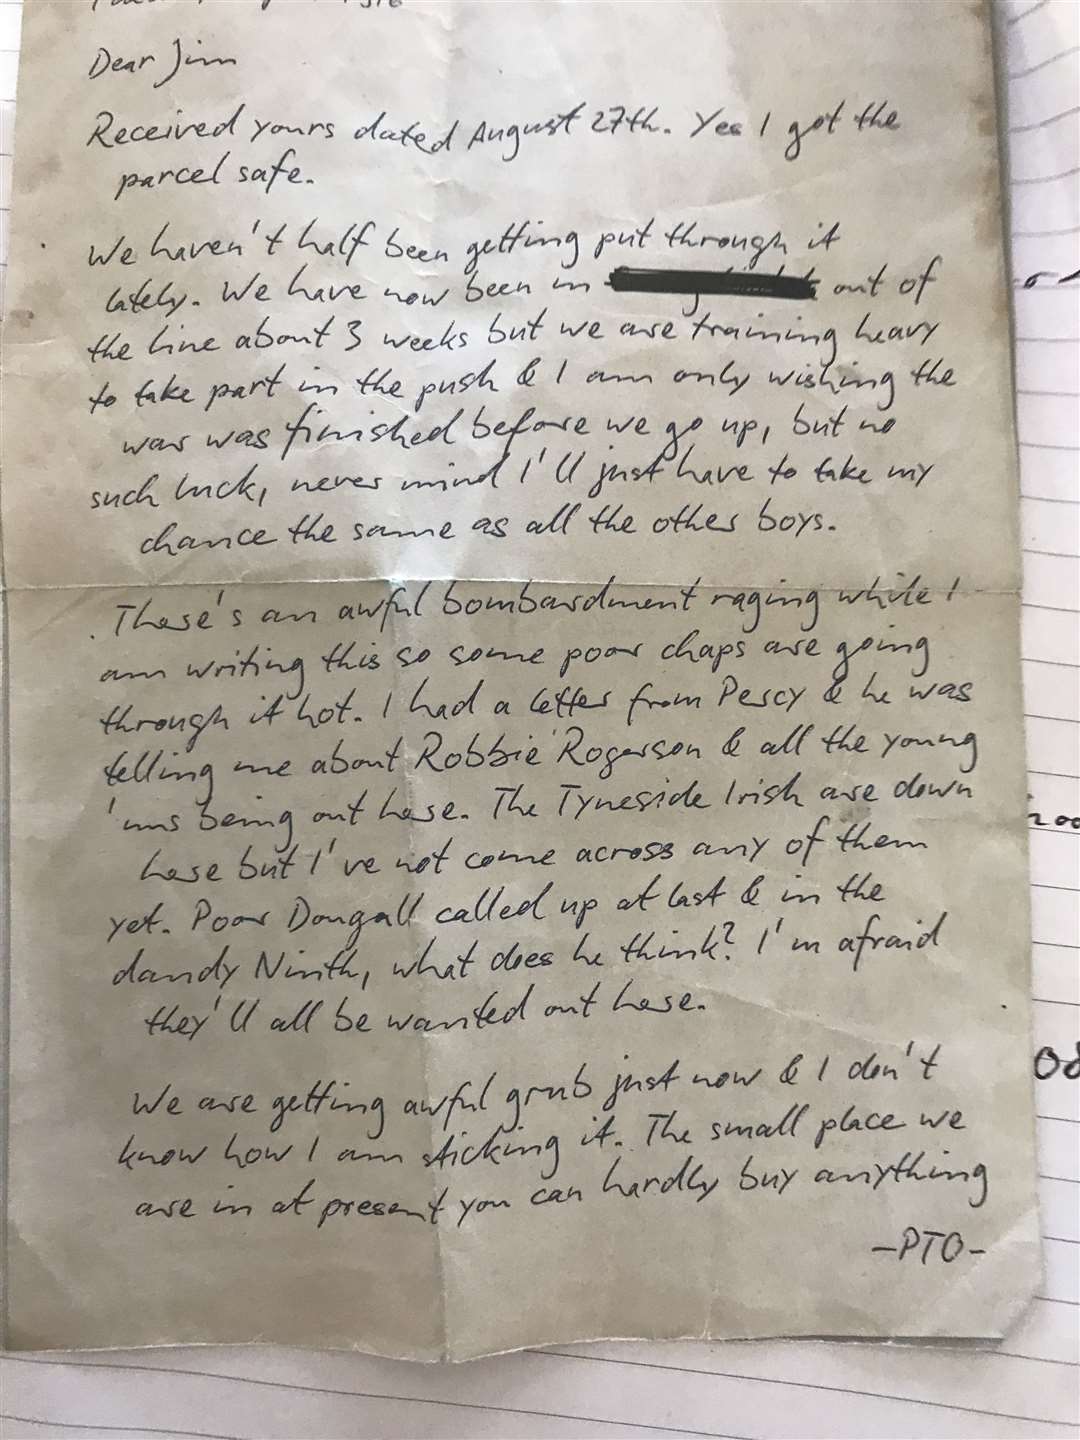 Dear Jim
Received yours dated August 27th. Yes I got the
parcel safe.
We haven't half been getting put through it
lately. We have now been in out of
the line about 3 weeks but we are training heavy
to take part in the push & I am only wishing the
war was finished before we go up, but no
such luck, never mind I'll just have to take my
chance the same as all the other boys.
There's an awful bombardment raging while I
am writing this so some poor chaps are going
through it hot. I had a letter from Percy & he was
telling me about Robbie Rogerson & all the young
'uns being out here. The Tyneside Irish are down
here but I've not come across any of them
yet. Poor Dougall called up at last & in the
dandy Ninth, what does he think? I'm afraid
they'll all be wanted out here.
We are getting awful grub just now & I don't
know how I am sticking it. The small place we
are in at present you can hardly buy anything
-PTO-